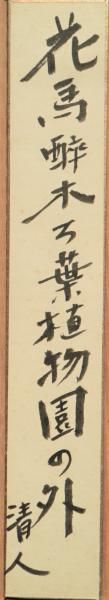 花馬酔木万葉植物園の外
清人